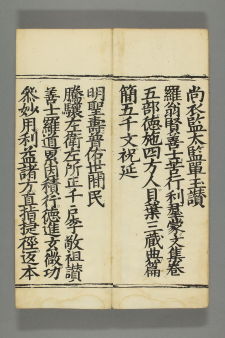 尚衣監太監單玉讃
羅翁賢善士苦行利羣蒙文集卷
五部德施四方人貝葉三藏典篇
簡五千文祝延
明聖壽普佑世間民
騰驤左衛左所正千戶李敬祖讃
善士羅道累因積行德進玄微功
叅妙用利益諸方直指捷徑返本